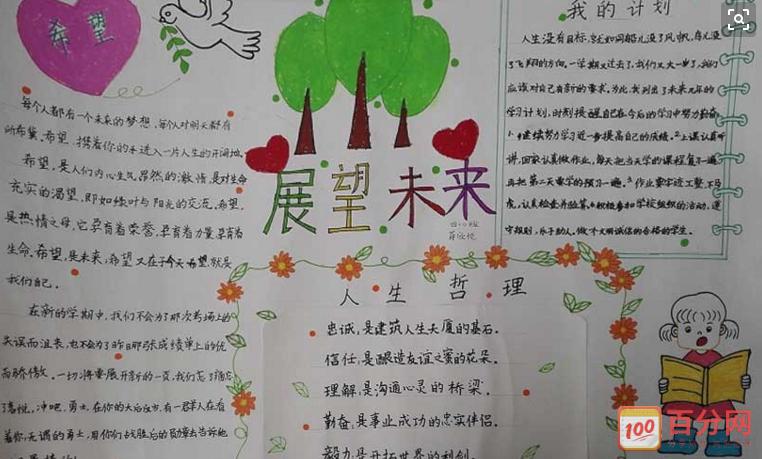 希望
每个人都有一个未来的梦想,每个人对明天都有
所希冀。希望,携着你的手进入一片人生的开阔地。
希望,是人们内心生气昂然的激情,是对生命
充实的渴望,即如绿叶与阳光的交流。希望,
是热情之母,它孕育着荣誉,孕育着力量,孕育着
生命。希望,是未来,希望又在于今天,希望就是
我们自己。
在新的学期中,我们不会为了那次考场上的
失误而沮丧,也不会为了昨日那张成绩单上的优
而骄傲。一切将要展开新的一页,我们忘了
了喜悦,冲吧,勇士,在你的大后方,有一群人在看
着你,无谓的勇士,用你们战胜后的勋章去告诉他
展望未来
我的计划
人生没有目标,就如同船儿没了风帆,鸟儿没
了飞翔的方向,一学期又过去了,我们又大一岁了,我们
应该对自己有新的要求。为此,我列出了未来几年的
学习计划,时刻提醒自己在今后的学习中努力勤奋。
1.继续努力学习进一步提高自己的成绩。2.上课认真听
讲,回家认真做作业,每天把当天学的课程复习一遍,
再把第二天要学的预习一遍。3.作业要字迹工整,不马
虎,认真检查并验算。4.积极参加学校组织的活动,遵
守规则,乐于助人,做个文明诚信的合格的学生。
人生哲理
忠诚,是建筑人生大厦的基石。
信任,是酿造友谊之蜜的花朵。
理解,是沟通心灵的桥梁。
勤奋,是事业成功的忠实伴侣。
毅力,是开拓世界的利剑。
100
百分网